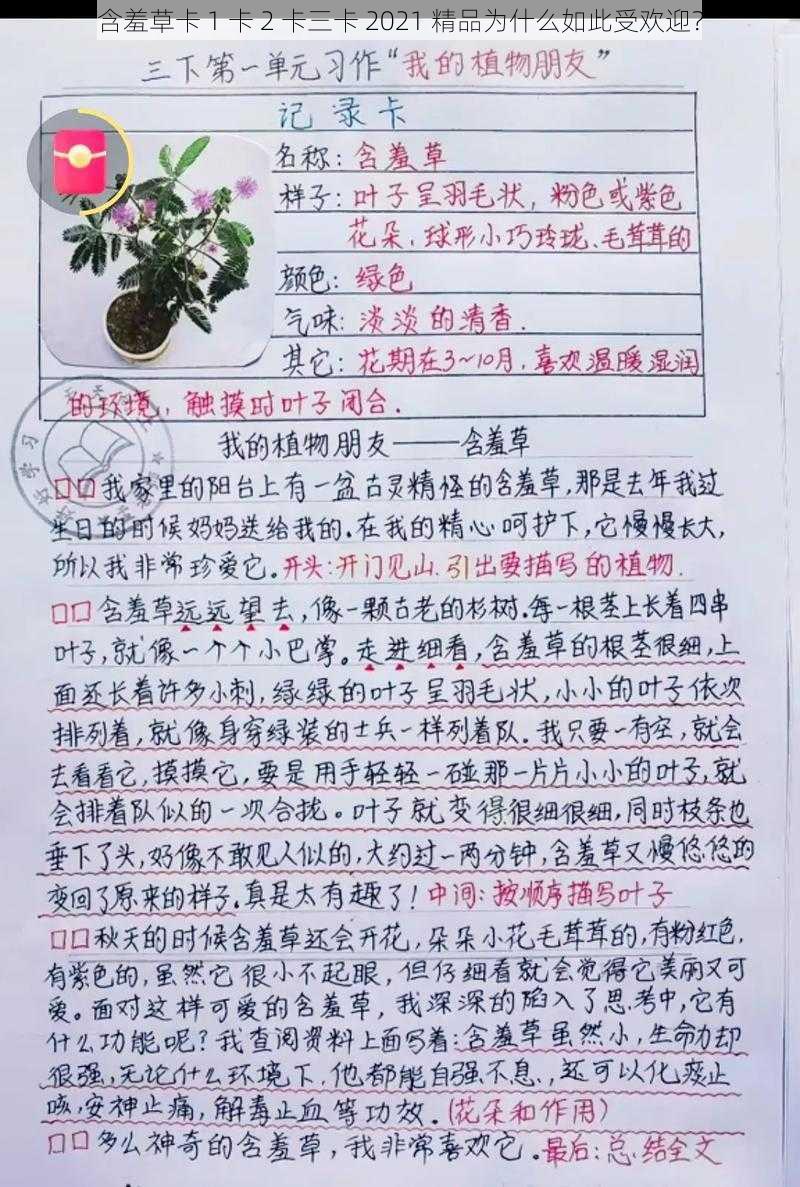 含羞草卡1卡2卡三卡2021精品为什么如此受欢迎?
三下第一单元习作“我的植物朋友”
记录卡
名称:含羞草
样子:叶子呈羽毛状,粉色或紫色
花朵,球形小巧玲珑、毛茸茸的
颜色:绿色
气味:淡淡的清香.
其它:花期在3~10月,喜欢温暖湿润
的环境,触摸时叶子闭合.
我的植物朋友——含羞草
□□我家里的阳台上有一盆古灵精怪的含羞草,那是去年我过
生日的时候妈妈送给我的.在我的精心呵护下,它慢慢长大,
所以我非常珍爱它.开头:开门见山.引出要描写的植物.
□□含羞草远远望去,像一颗古老的杉树.每一根茎上长着四串
叶子,就像一个个小巴掌。走进细看,含羞草的根茎很细,上
面还长着许多小刺,绿绿的叶子呈羽毛状,小小的叶子依次
排列着,就像身穿绿装的士兵一样列着队.我只要一有空,就会
去看看它,摸摸它,要是用手轻轻一碰那一片片小小的叶子,就
会排着队似的一次合拢。叶子就变得很细很细,同时枝条也
垂下了头,好像不敢见人似的,大约过一两分钟,含羞草又慢悠悠的
变回了原来的样子.真是太有趣了!中间:按顺序描写叶子
□□秋天的时候含羞草还会开花,朵朵小花毛茸茸的,有粉红色,
有紫色的,虽然它很小不起眼,但仔细看就会觉得它美丽又可
爱。面对这样可爱的含羞草,我深深的陷入了思考中,它有
什么功能呢?我查阅资料上面写着:含羞草虽然小,生命力却
很强,无论什么环境下,他都能自强不息.,还可以化痰止
咳,安神止痛,解毒止血等功效.(花朵和作用)
□□多么神奇的含羞草,我非常喜欢它.最后:总结全文